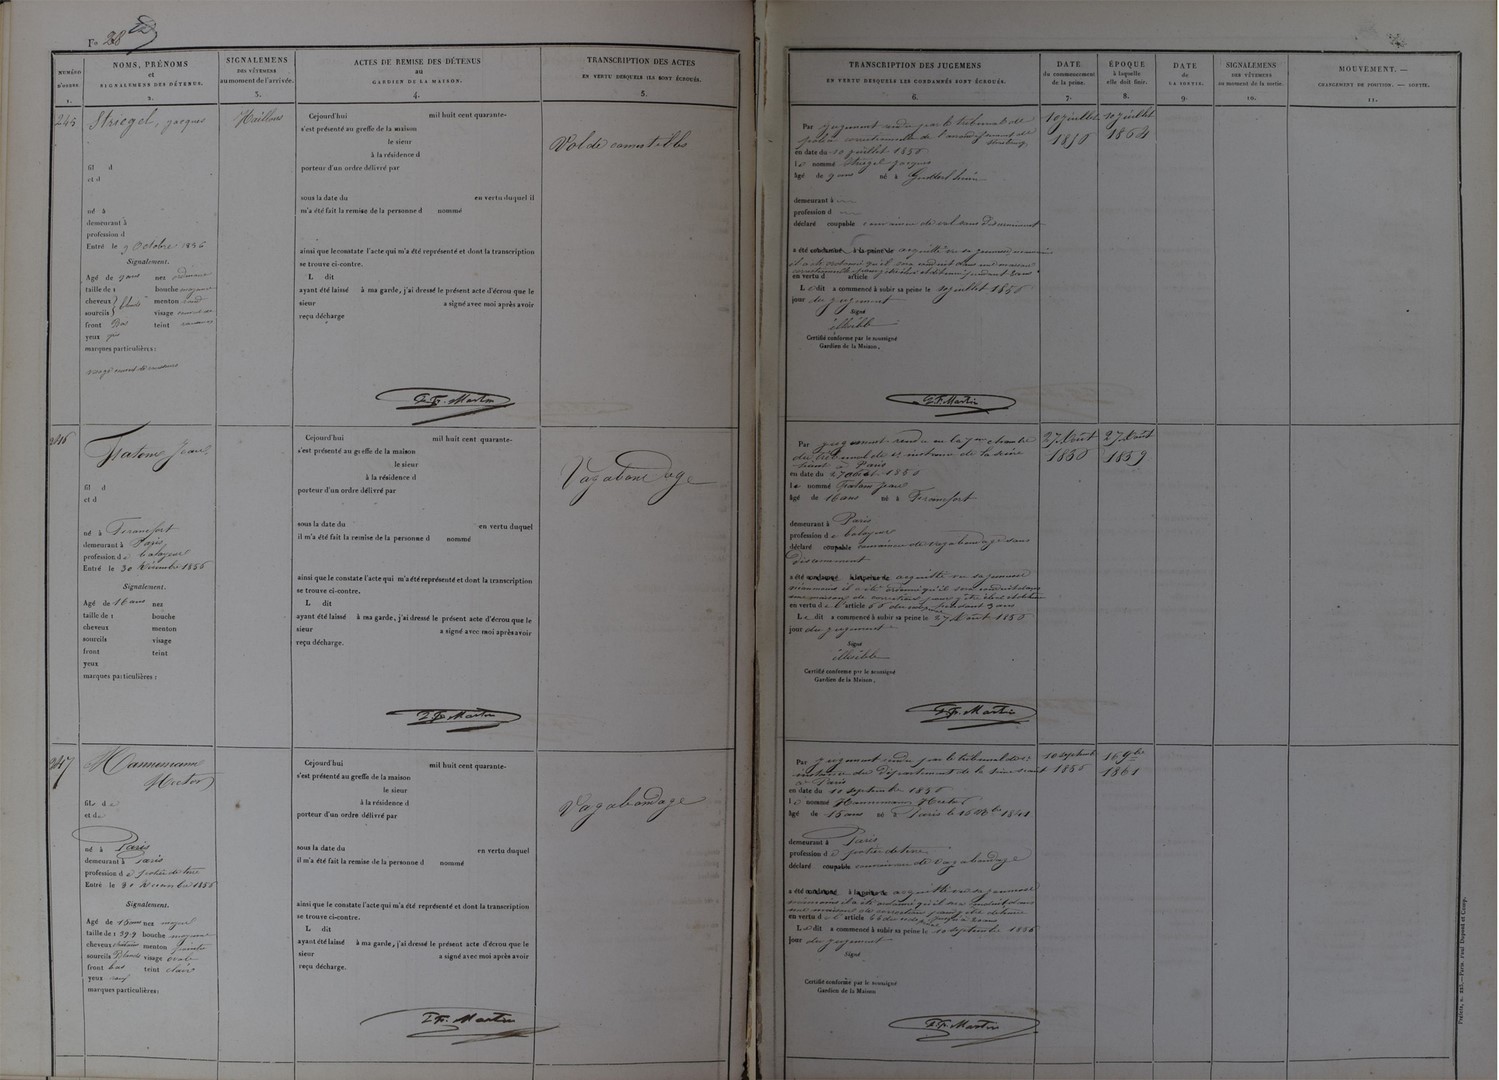 Fo 28
NUMÉRO
D'ORDRE
1.
NOMS, PRÉNOMS
et
SIGNALEMENS DES DÉTENUS.
2.
SIGNALEMENS
DES VÊTEMENS
au moment de l'arrivée.
3.
ACTES DE REMISE DES DÉTENUS
au
GARDIEN DE LA MAISON.
4.
TRANSCRIPTION DES ACTES
EN VERTU DESQUELS ILS SONT ÉCROUÉS.
5.
TRANSCRIPTION DES JUGEMENS
EN VERTU DESQUELS LES CONDAMNÉS SONT ÉCROUÉS.
6.
DATE
du commencement
de la peine.
7.
ÉPOQUE
à laquelle
elle doit finir.
8.
DATE
de
LA SORTIE.
9.
SIGNALEMENS
DES VÊTEMENS
au moment de la sortie.
10.
MOUVEMENT. —
CHANGEMENT DE POSITION. — SORTIE.
11.
245
Striegel, Jacques
fil d
et d
né à
demeurant à
profession d
Entré le 9 Octobre 1856
Signalement.
Agé de 9 ans nez ordinaire
taille de 1 bouche moyenne
cheveux menton rond
sourcils visage
front Bas teint
yeux gris
marques particulières :
Haillons
Cejourd'hui mil huit cent quarante-
s'est présenté au greffe de la maison
le sieur
à la résidence d
porteur d'un ordre délivré par
sous la date du en vertu duquel il
m'a été fait la remise de la personne d nommé
ainsi que le constate l'acte qui m'a été représenté et dont la transcription
se trouve ci-contre.
L dit
ayant été laissé à ma garde, j'ai dressé le présent acte d'écrou que le
sieur a signé avec moi après avoir
reçu décharge
F. Martin
Vol de comestibles
Par jugement rendu par le tribunal de
police correctionnelle de l'arrondissement de
Strasbourg
en date du 10 juillet 1856
le nommé Striegel Jacques
âgé de 9 ans né à
demeurant à
profession d
déclaré coupable convaincu de vol sans discernement
a été condamné à la peine de acquitté
il a été ordonné qu'il sera conduit dans une maison
en vertu d article
Le dit a commencé à subir sa peine le 10 juillet 1856
jour du jugement
Signé
illisible
Certifié conforme par le soussigné
Gardien de la Maison,
F. Martin
10 juillet
1856
10 juillet
1864
246
Jean
fil d
et d
né à Francfort
demeurant à Paris
profession de balayeur
Entré le 30 Décembre 1856
Signalement.
Agé de 16 ans nez
taille de 1 bouche
cheveux menton
sourcils visage
front teint
yeux
marques particulières :
Cejourd'hui mil huit cent quarante-
s'est présenté au greffe de la maison
le sieur
à la résidence d
porteur d'un ordre délivré par
sous la date du en vertu duquel
il m'a été fait la remise de la personne d nommé
ainsi que le constate l'acte qui m'a été représenté et dont la transcription
se trouve ci-contre.
L dit
ayant été laissé à ma garde, j'ai dressé le présent acte d'écrou que le
sieur a signé avec moi après avoir
reçu décharge.
F. Martin
Vagabondage
Par jugement rendu en la 7me chambre
du tribunal de 1re instance de la Seine
séant à Paris
en date du 27 août 1856
le nommé Jean
âgé de 16 ans né à Francfort
demeurant à Paris
profession de balayeur
déclaré coupable convaincu de vagabondage sans
discernement
a été condamné à la peine de acquitté
néanmoins il a été ordonné qu'il sera conduit dans
une maison de correction pour y être élevé et détenu
en vertu de l'article 66 du code pénal pendant 3 ans
Le dit a commencé à subir sa peine le 27 Août 1856
jour du jugement
Signé
illisible
Certifié conforme par le soussigné
Gardien de la Maison,
F. Martin
27 Août
1856
27 Août
1859
247
Hannemann
Hector
fils de
et de
né à Paris
demeurant à Paris
profession de potier de terre
Entré le 30 Décembre 1856
Signalement.
Agé de 15 ans nez moyen
taille de 1 39.9 bouche moyenne
cheveux châtains menton pointu
sourcils Blonds visage ovale
front bas teint clair
yeux
marques particulières :
Cejourd'hui mil huit cent quarante-
s'est présenté au greffe de la maison
le sieur
à la résidence d
porteur d'un ordre délivré par
sous la date du en vertu duquel
il m'a été fait la remise de la personne d nommé
ainsi que le constate l'acte qui m'a été représenté et dont la transcription
se trouve ci-contre.
L dit
ayant été laissé à ma garde, j'ai dressé le présent acte d'écrou que le
sieur a signé avec moi après avoir
reçu décharge.
F. Martin
Vagabondage
Par jugement rendu par le tribunal de 1re
instance du Département de la Seine séant
à Paris
en date du 10 septembre 1856
le nommé Hannemann Hector
âgé de 15 ans né à Paris le 16 1841
demeurant à Paris
profession de potier de terre
déclaré coupable convaincu de vagabondage
a été condamné à la peine de acquitté
néanmoins il a été ordonné qu'il sera conduit dans
une maison de correction pour y être détenu
en vertu de l'article 66 du code
Le dit a commencé à subir sa peine le 10 septembre 1856
jour du jugement
Signé
Certifié conforme par le soussigné
Gardien de la Maison
F. Martin
10 septembre
1856
1861